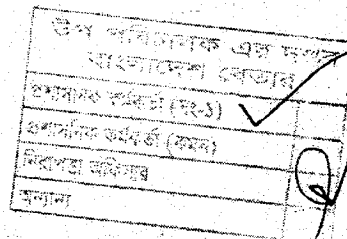 উপ পরিচালক এর দপ্তর
বাংলাদেশ বেতার
প্রশাসনিক কর্মকর্তা (সং-১)
প্রশাসনিক কর্মকর্তা (কমন)
নিরাপত্তা অফিসার
অন্যান্য